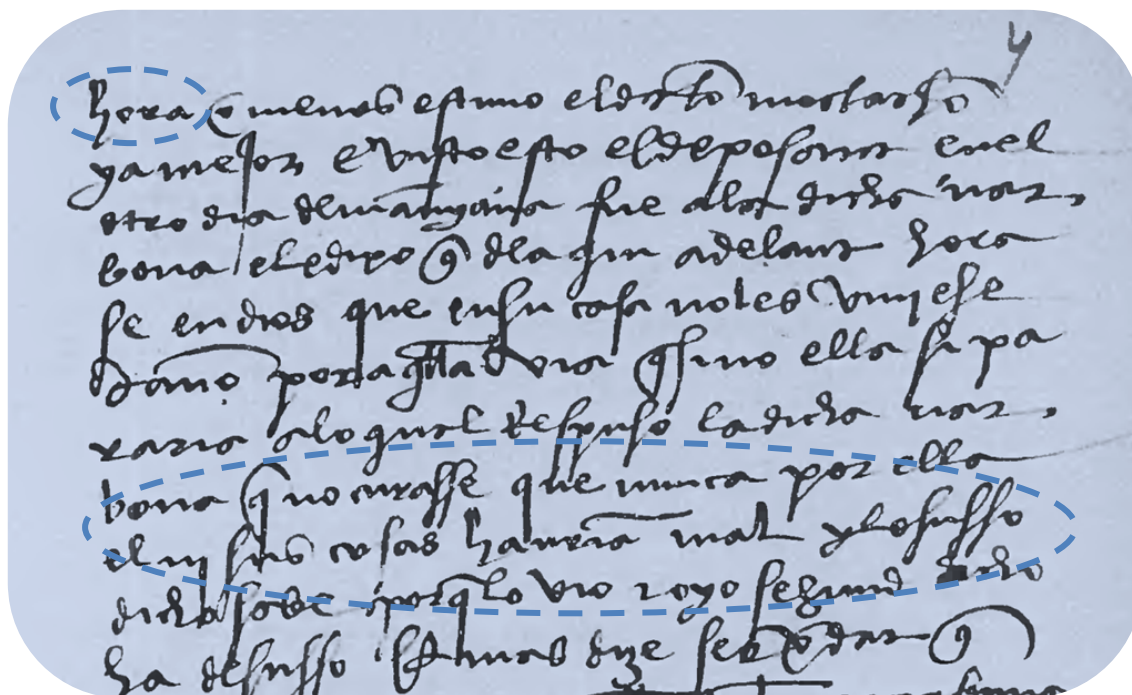 y
hora o menos estuvo el dicto mochacho
ya mejor e visto esto el deposant en el
otro dia de manyana fue a la dicha nar
bona et dixo q̃ dla qui adelant hora
se en dios que en su casa no les viniese
danyo por ta q̃lla via q̃ sino ella si pa
raria a lo qual respuso la dicha nar
bona q̃ no curasse que nunca por ella
el nj sus cosas hauria mal y lo susso
dicho sabe porq̃ lo vio z oyo segund dicho
ha desusso mas dize seer verdat q̃